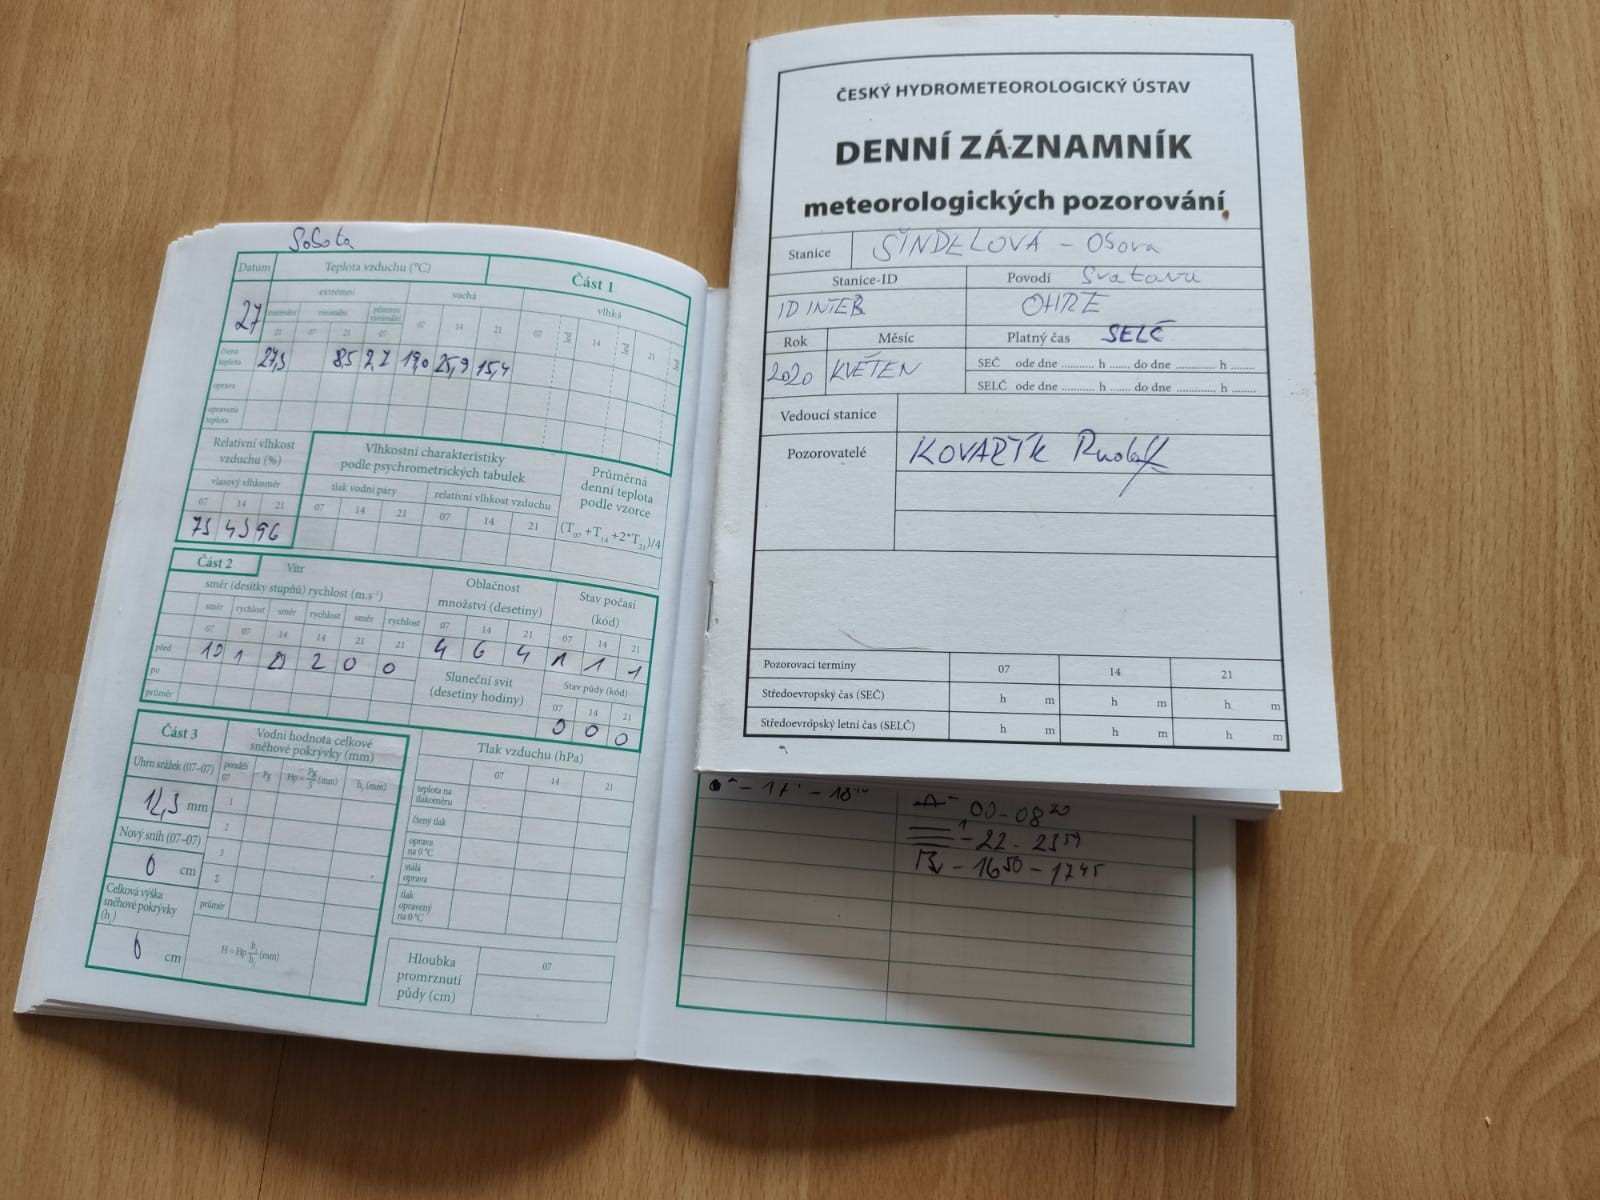 Sobota
Datum
Teplota vzduchu (°C)
Část 1
27
extrémní
suchá
vlhká
maximální
minimální
přízemní minimální
21 07 21 07 07 14 21 07 led 14 led 21 led
čtená teplota
27,5 8,5 7,7 19,0 25,9 15,4
oprava
opravená teplota
Relativní vlhkost vzduchu (%)
Vlhkostní charakteristiky
podle psychrometrických tabulek
Průměrná
denní teplota
podle vzorce
vlasový vlhkoměr
tlak vodní páry
relativní vlhkost vzduchu
07 14 21 07 14 21 07 14 21
(T07+T14+2*T21)/4
75 45 96
Část 2
Vítr
směr (desítky stupňů) rychlost (m.s-1)
Oblačnost
množství (desetiny)
Stav počasí
(kód)
směr rychlost směr rychlost směr rychlost
07 07 14 14 21 21 07 14 21 07 14 21
před
1 2 0 0 4 6 4 1 1 1
po
průměr
Sluneční svit
(desetiny hodiny)
Stav půdy (kód)
07 14 21
0 0 0
Část 3
Vodní hodnota celkové
sněhové pokrývky (mm)
Tlak vzduchu (hPa)
Úhrn srážek (07-07)
pondělí 07
Pg
Hp= Pg/5 (mm)
h1 (mm)
07 14 21
12,3 mm
1
2
3
Σ
průměr
teplota na tlakoměru
čtený tlak
oprava na 0 °C
stálá oprava
tlak opravený na 0 °C
Nový sníh (07-07)
0 cm
Celková výška
sněhové pokrývky
0 cm
(mm)
Hloubka
promrznutí
půdy (cm)
07
ČESKÝ HYDROMETEOROLOGICKÝ ÚSTAV
DENNÍ ZÁZNAMNÍK
meteorologických pozorování
Stanice
ŠINDELOVÁ - Obora
Stanice-ID
Povodí Svatava
OHŘE
Rok
Měsíc
Platný čas SELČ
2020
KVĚTEN
SEČ ode dne ........... h ...... do dne ............ h .......
SELČ ode dne ........... h ...... do dne ............ h .......
Vedoucí stanice
Pozorovatelé
KOVARIK Rudolf
Pozorovací termíny 07 14 21
Středoevropský čas (SEČ) h m h m h m
Středoevropský letní čas (SELČ) h m h m h m
00-08 20
- 22 - 23 59
- 16 50 - 17 45